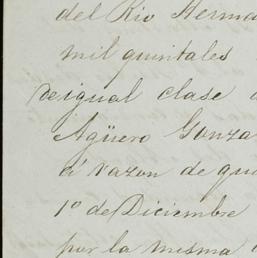 del Rio Herma
mil quintales
de igual clase
Agüero Gonza
á razon de qui
1º de Diciembre
por la misma